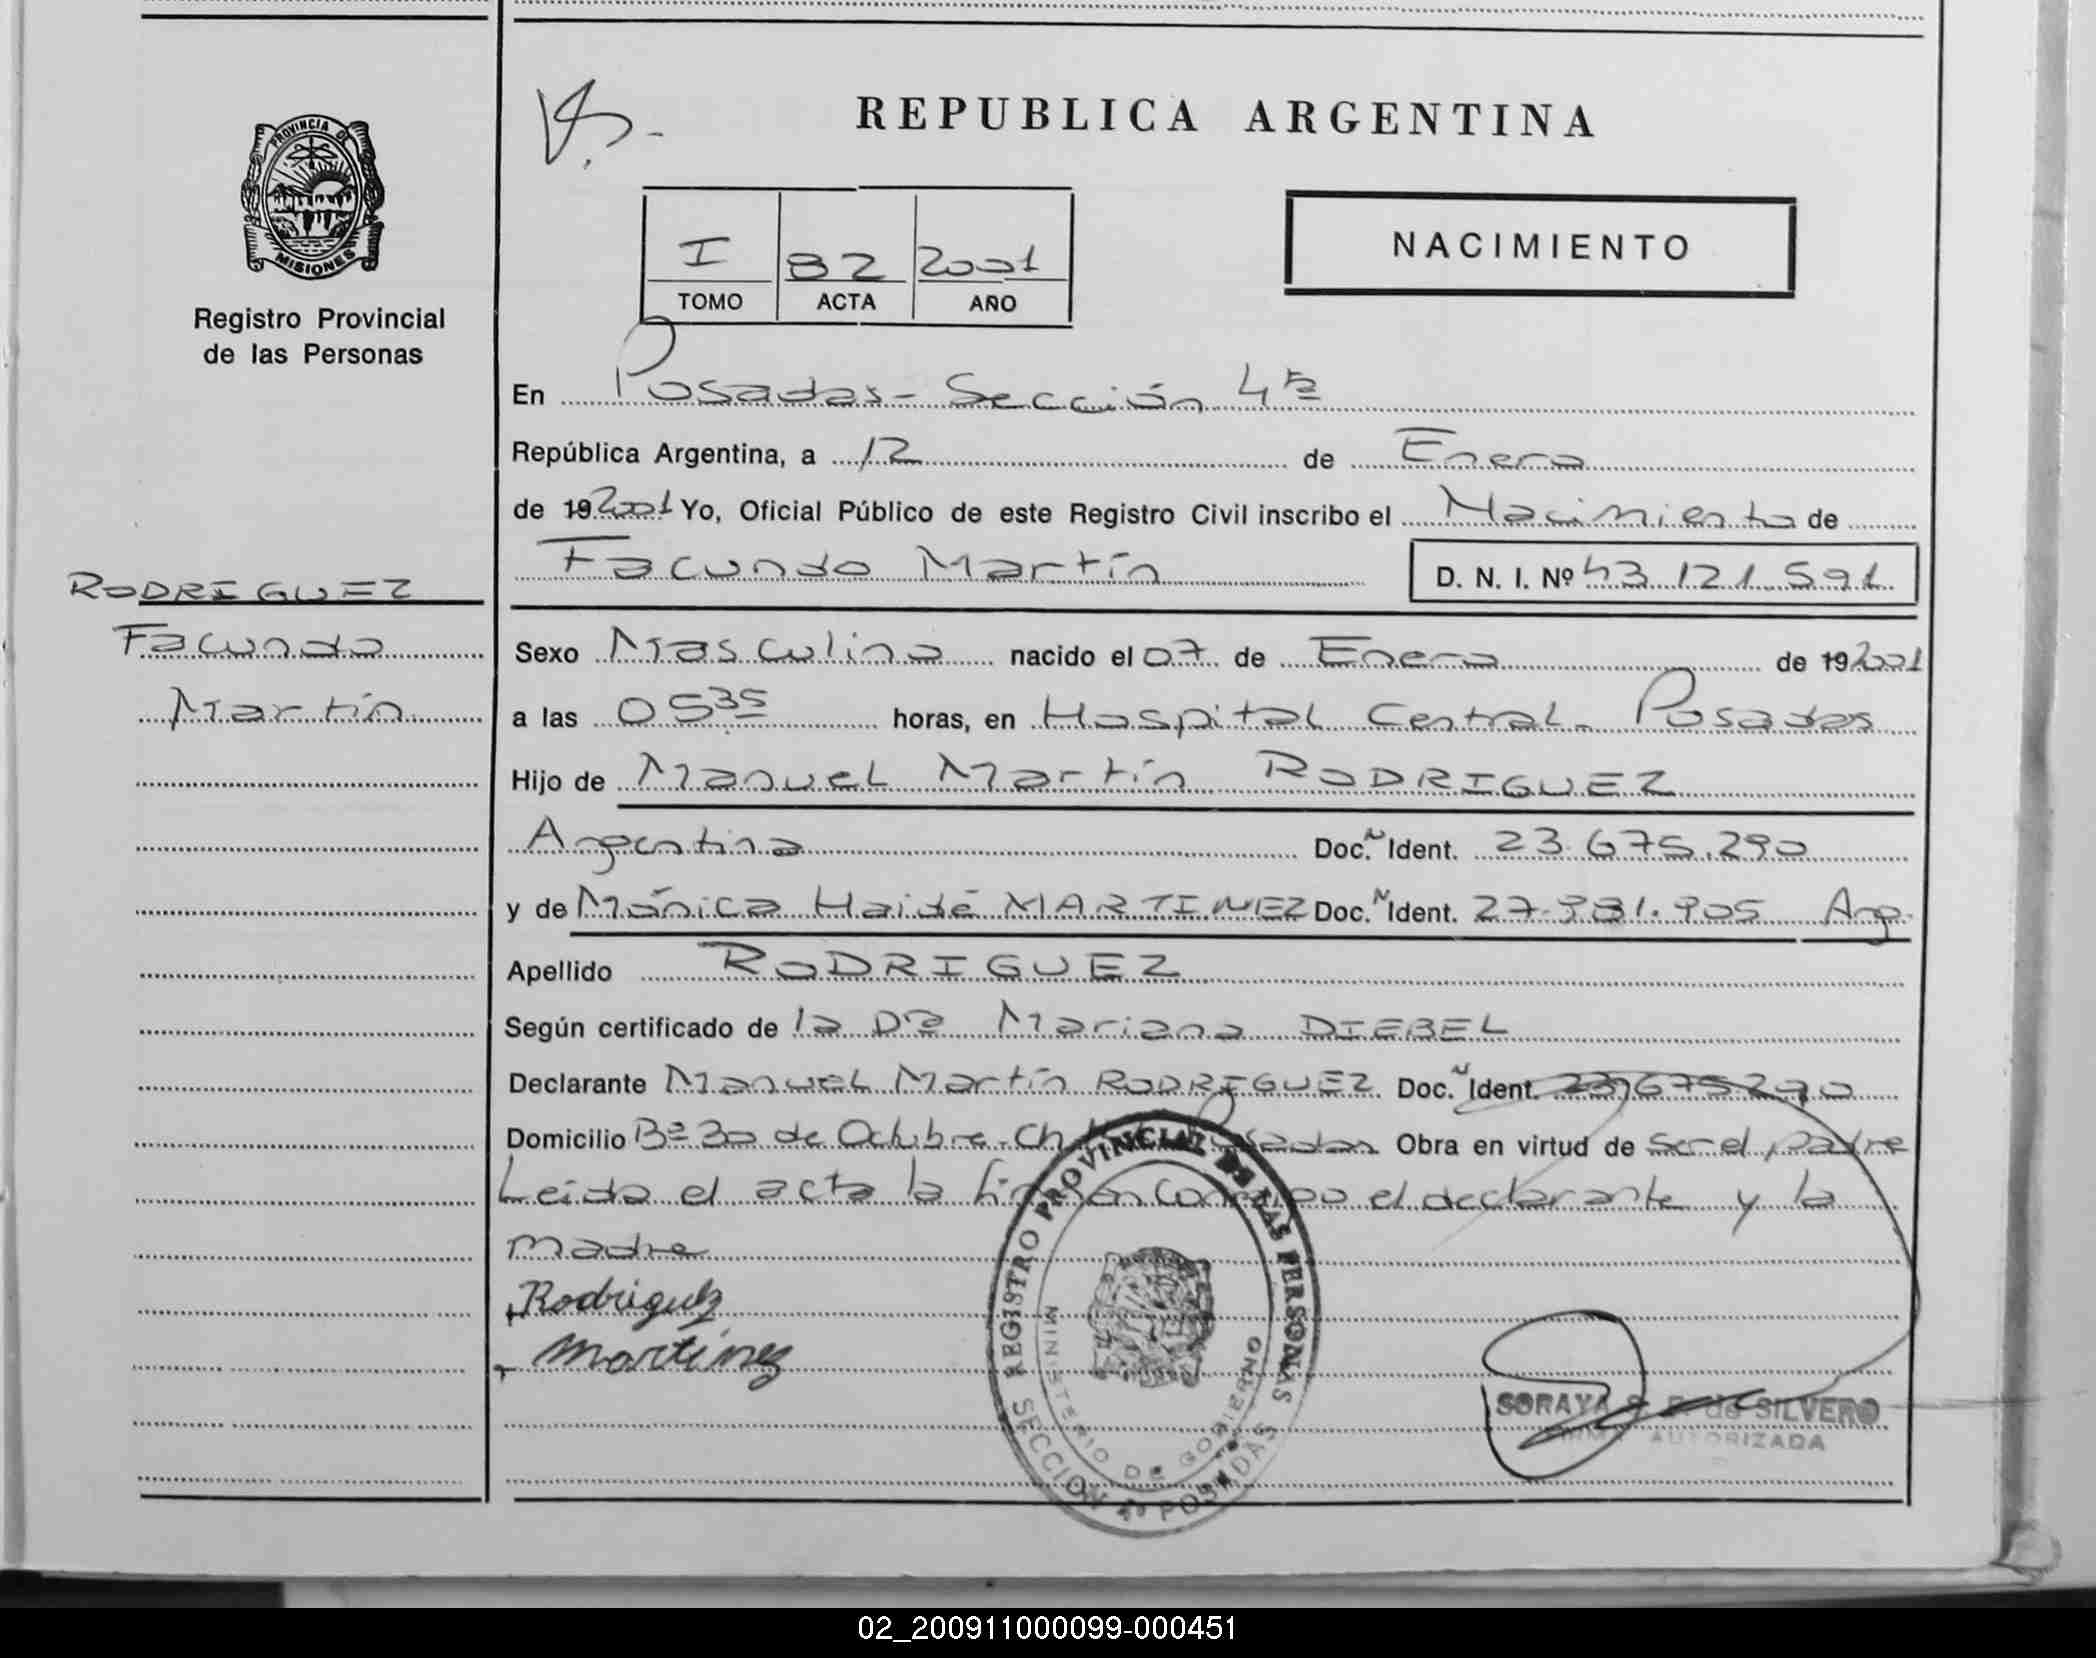 REPUBLICA ARGENTINA
PROVINCIA DE
MISIONES
Registro Provincial
de las Personas
NACIMIENTO
I 82 2001
TOMO ACTA AÑO
En Posadas - Sección 4ta
República Argentina, a 12 de Enero
de 19 2001 Yo, Oficial Público de este Registro Civil inscribo el Nacimiento de
Facundo Martín D. N. I. Nº 43.121.591
RODRIGUEZ
Facundo
Martín
Sexo Masculino nacido el 07 de Enero de 19 2001
a las 05 35 horas, en Hospital Central - Posadas
Hijo de Manuel Martín RODRIGUEZ
Argentina Doc. Ident. 23.675.290
y de Mónica Haidé MARTINEZ Doc. Ident. Arg.
Apellido RODRIGUEZ
Según certificado de la Dra Mariana DIEBEL
Declarante Manuel Martín RODRIGUEZ Doc. Ident. 23.675.290
Domicilio Bº 30 de Octubre - Posadas Obra en virtud de ser el padre
Leida el acta la firman conmigo el declarante y la
madre
Rodriguez
Martinez
REGISTRO PROVINCIAL DE LAS PERSONAS
MINISTERIO DE GOBIERNO
SECCION 4º POSADAS
SORAYA de SILVERO
FIRMA AUTORIZADA
02_200911000099-000451